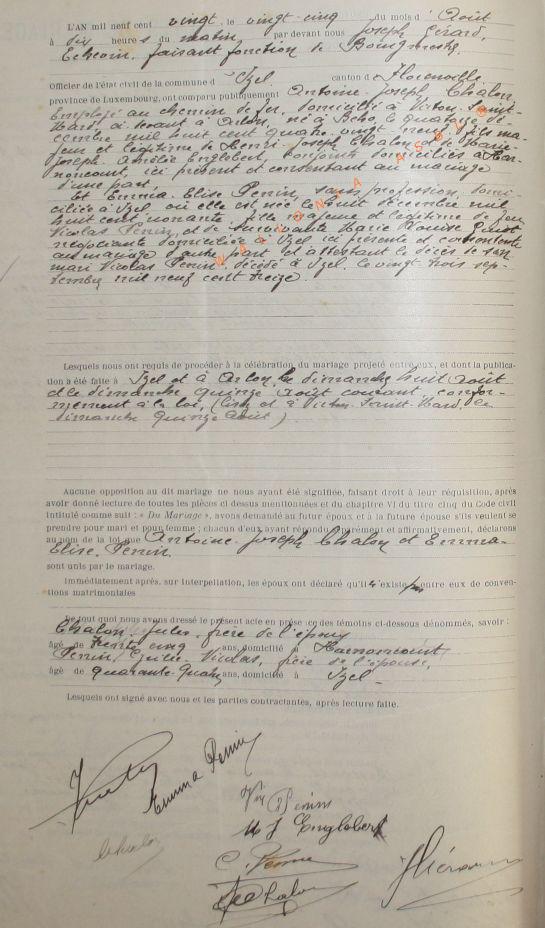 L'AN mil neuf cent vingt, le vingt-cinq du mois d' Août
à dix heures du matin, par devant nous Joseph Gérard,
Echevin, faisant fonction de Bourgmestre,
Officier de l'état civil de la commune d' Izel canton d
province de Luxembourg, ont comparu publiquement Antoine-Joseph Chalon,
Employé au chemin de fer, domicilié à Virton Saint-
Mard, à Arlon, né à le quatorze dé-
cembre mil huit cent quatre-vingt neuf, fils ma-
jeur et légitime de Henri-Joseph Chalon et de Marie-
Joseph-Amélie Englebert, conjoints domiciliés à Har-
noncourt, ici présent et consentant au mariage
d'une part,
Et Emma-Elise Penin, sans profession, domi-
ciliée à Izel où elle est née le huit décembre mil
huit cent nonante, fille majeure et légitime de feu
Nicolas Penin, et de survivante Marie Louise
négociante domiciliée à Izel ici présente et consentante
au mariage d'autre part et attestant le décès de son
mari Nicolas Penin décédé à Izel, le vingt-trois sep-
tembre mil neuf cent treize.
Lesquels nous ont requis de procéder à la célébration du mariage projeté entre eux, et dont la publica-
tion a été faite à Izel et à Arlon, le dimanche huit août
et le dimanche quinze août courant, confor-
mément à la loi, ( et à Virton-Saint-Mard, le
dimanche quinze août)
Aucune opposition au dit mariage ne nous ayant été signifiée, faisant droit à leur réquisition, après
avoir donné lecture de toutes les pièces ci dessus mentionnées et du chapitre VI du titre cinq du Code civil
intitulé comme suit : « Du Mariage », avons demandé au futur époux et à la future épouse s'ils veulent se
prendre pour mari et pour femme ; chacun d'eux ayant répondu séparément et affirmativement, déclarons
au nom de la loi que Antoine-Joseph Chalon et Emma-
Elise Penin
sont unis par le mariage.
Immédiatement après, sur interpellation, les époux ont déclaré qu'il n'existe pas entre eux de conven-
tions matrimoniales
De tout quoi nous avons dressé le présent acte en présence des témoins ci-dessous dénommés, savoir :
Chalon, Jules, frère de l'époux
âgé de trente cinq ans, domicilié à Harnoncourt
Penin, Nicolas, frère de l'épouse,
âgé de quarante-quatre ans, domicilié à Izel
Lesquels ont signé avec nous et les parties contractantes, après lecture faite.
Emma Penin
Penin
M J Englebert
Chalon